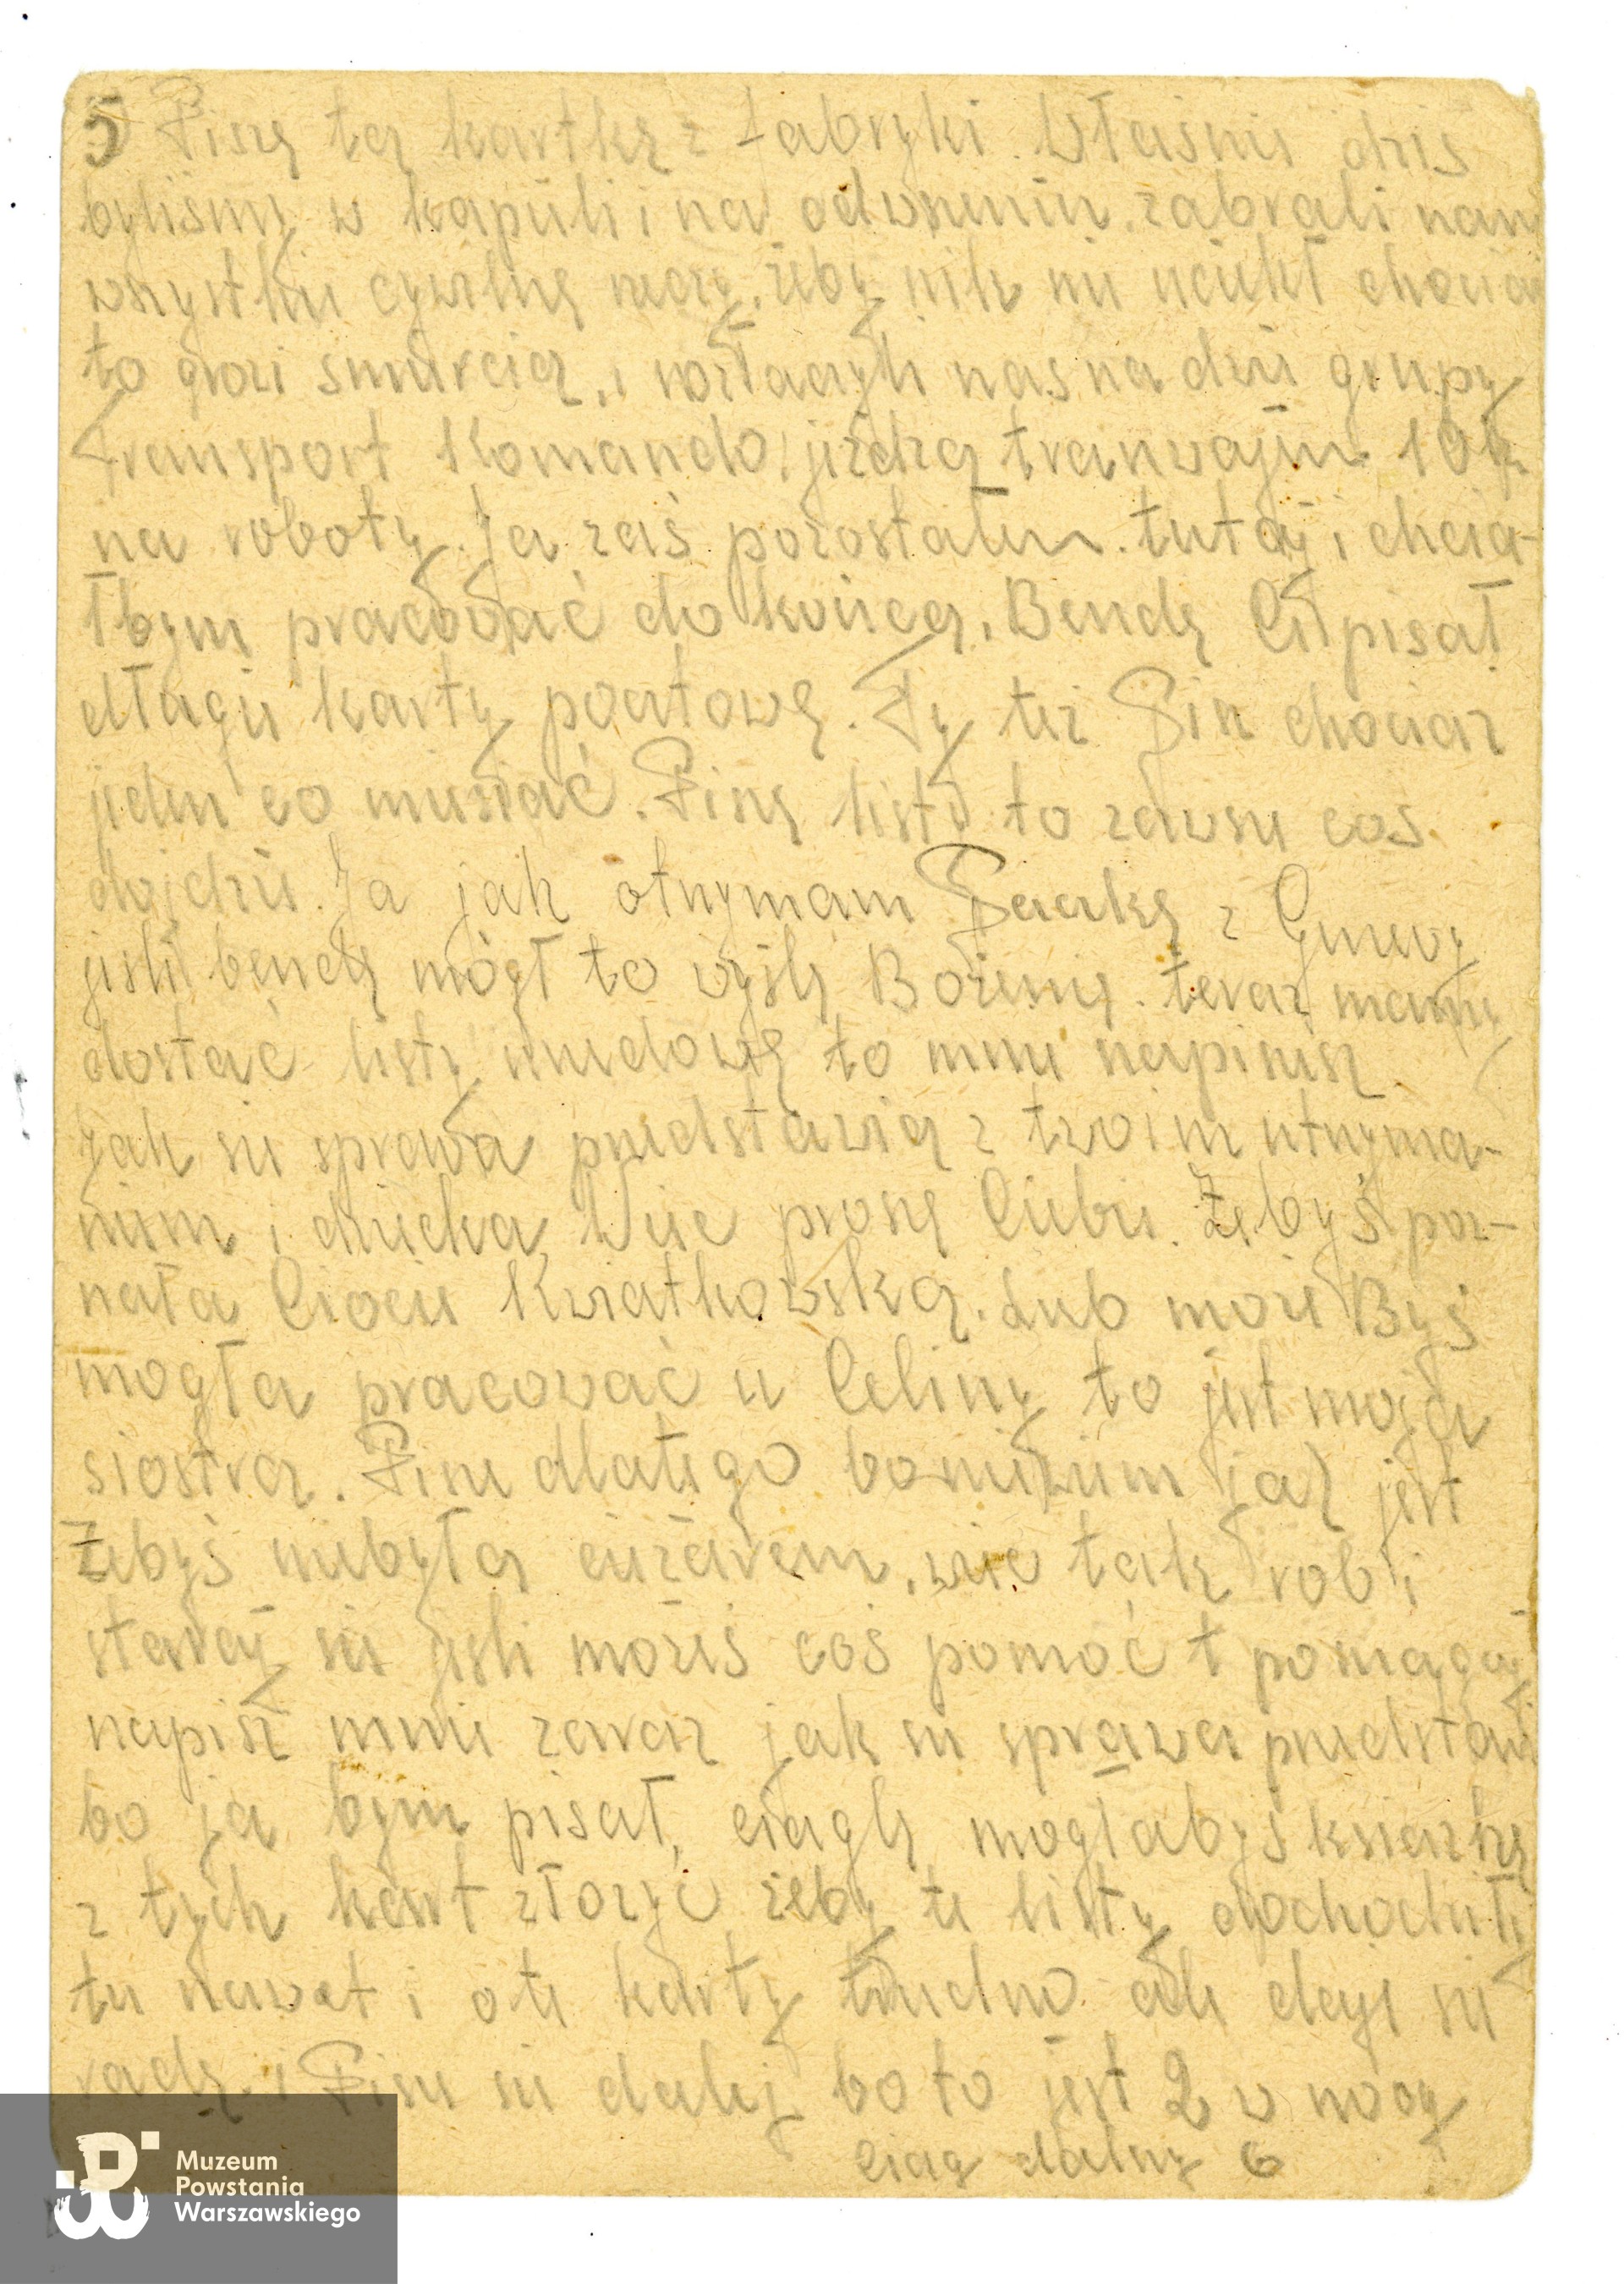 5 Piszę tą kartkę z fabryki. Właśnie dziś
byliśmy w kąpieli i na odwszeniu. zabrali nam
wszystkie cywilnę rzeczy, żeby nik nie uciekł chociaż
to grozi śmiercią, i rozłączyli nas na dwie grupy
Transport Komando, jeżdżą tramwajem
na roboty. Ja zaś pozostałem. tutaj i chcia-
łbym pracować do końca. Bendę Ci pisał
długie karty pocztowę. Ty też chociaż
jeden co miesiąć. Piszę listy to zawsze coś
dojdzie. Ja jak otrzymam Paczkę z Genewy
jeśli bendę mógł to wyślę Bożenię. teraz mamy
dostać listy to mnie napiszesz
Jak sie sprawa przedstawia z twoim utrzyma-
niem i dziecka. Wiec proszę Ciebie. Żebyś poz-
nała Ciocie Kwiatkowską. Lub może Byś
mogła pracować u Celiny to jest moja
siostra. Pisze dlatego bo niewiem jaż jest
Żebyś niebyła cieżarem, wiec tak rob i
staraj sie jeśli możesz coś pomóć t pomagaj
napisz mnie zaraz jak sie sprawa przedstawi
bo ja bym pisał, ciaglę mogłabyś ksiarzkę
z tych kart złożyć żeby te listy dochodziły
tu nawet i o te karty trudno ale daje sie
radę. i Pisze sie dalej bo to jest 2 w nocy
Ciag dalszy 6
Muzeum
Powstania
Warszawskiego